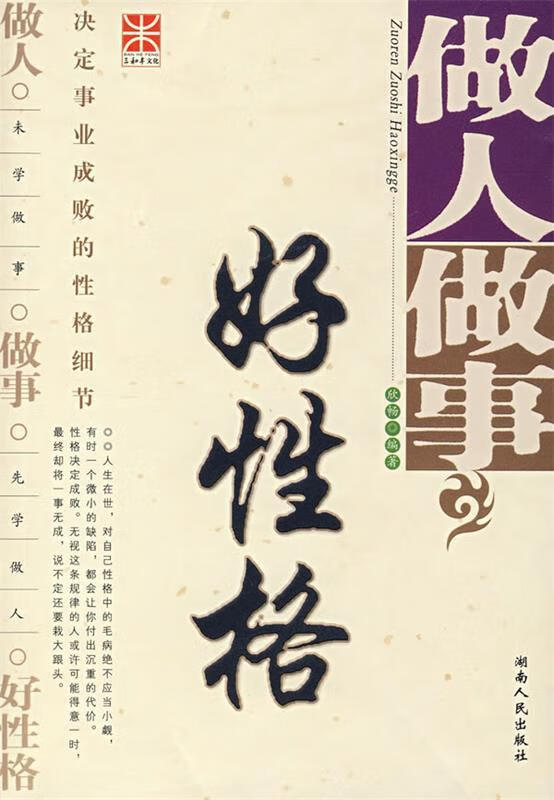 做人做事
Zuoren Zuoshi Haoxingge
欣畅◎编著
好性格
SAN HE FENG
三和丰文化
决定事业成败的性格细节
◎◎人生在世，对自己性格中的毛病绝不应当小觑，
有时一个微小的缺陷，都会让你付出沉重的代价。
性格决定成败。无视这条规律的人或许可能得意一时，
最终却将一事无成，说不定还要栽大跟头。
做人○未学做事○做事○先学做人○好性格
湖南人民出版社